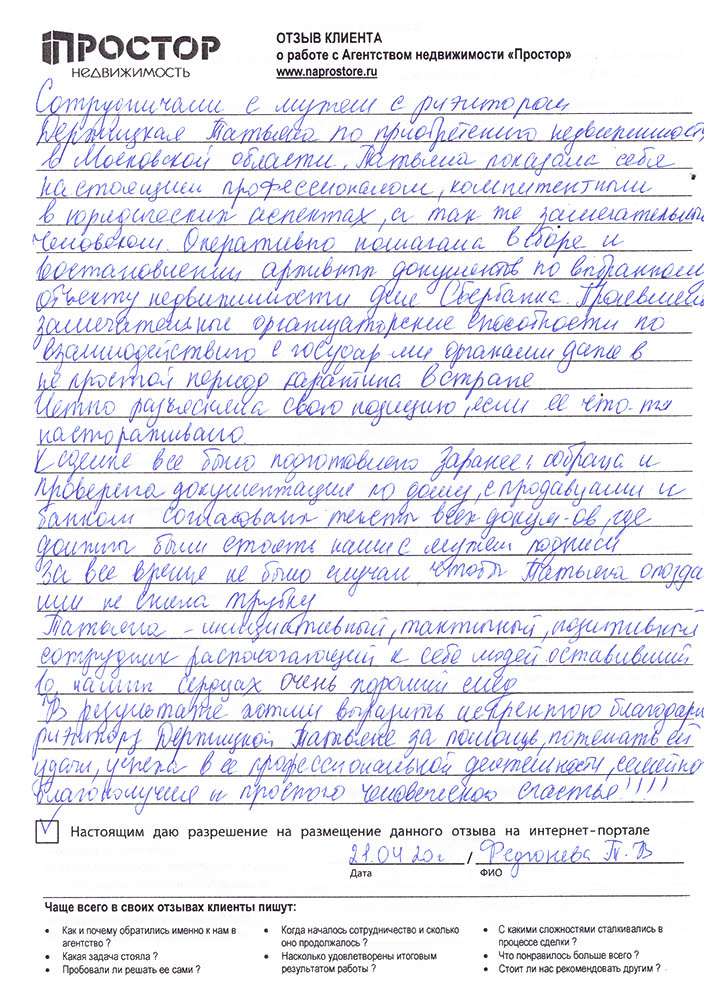 ПРОСТОР
НЕДВИЖИМОСТЬ
ОТЗЫВ КЛИЕНТА
о работе с Агентством недвижимости «Простор»
www.naprostore.ru
Сотрудничали с мужем с риэлтором
Держицкая Татьяна по приобретению недвижимость
в Московской области. Татьяна показала себя
настоящим профессионалом, компитентным
в юридических аспектах, а так же замечательным
человеком. Оперативно помагала в сборе и
востановлении архивных документов по выбранном
объекту недвижимости для Сбербанка. Проявила
замечательные организаторские способности по
взаимодействию с государ-ми органами даже в
не простой период карантина в стране
Четко разъясняла свою позицию, если ее что-то
настораживало.
К сделке все было подготовлено заранее: собрана и
проверена документация по дому, с продавцами и
банком согласованы тексты всех докум-ов, где
должны были стоять наши с мужем подписи
За все время не было случая, чтобы Татьяна опозда
или не сняла трубку
Татьяна - инициативный, тактичный, позитивный
сотрудник распологающий к себе людей оставивший
в наших сердцах очень хороший след
В результате хотим выразить искреннюю благодарн
риэлтору Держицкой Татьяне за помощь, пожелать ей
удачи, успеха в ее профессиональной деятельности, семейно
благополучия и простого человеческого счастья!!!!
V Настоящим даю разрешение на размещение данного отзыва на интернет-портале
21.04 20г / Федюнева Т.В
Дата ФИО
Чаще всего в своих отзывах клиенты пишут:
• Как и почему обратились именно к нам в агентство ?
• Какая задача стояла ?
• Пробовали ли решать ее сами ?
• Когда началось сотрудничество и сколько оно продолжалось ?
• Насколько удовлетворены итоговым результатом работы ?
• С какими сложностями сталкивались в процессе сделки ?
• Что понравилось больше всего ?
• Стоит ли нас рекомендовать другим ?